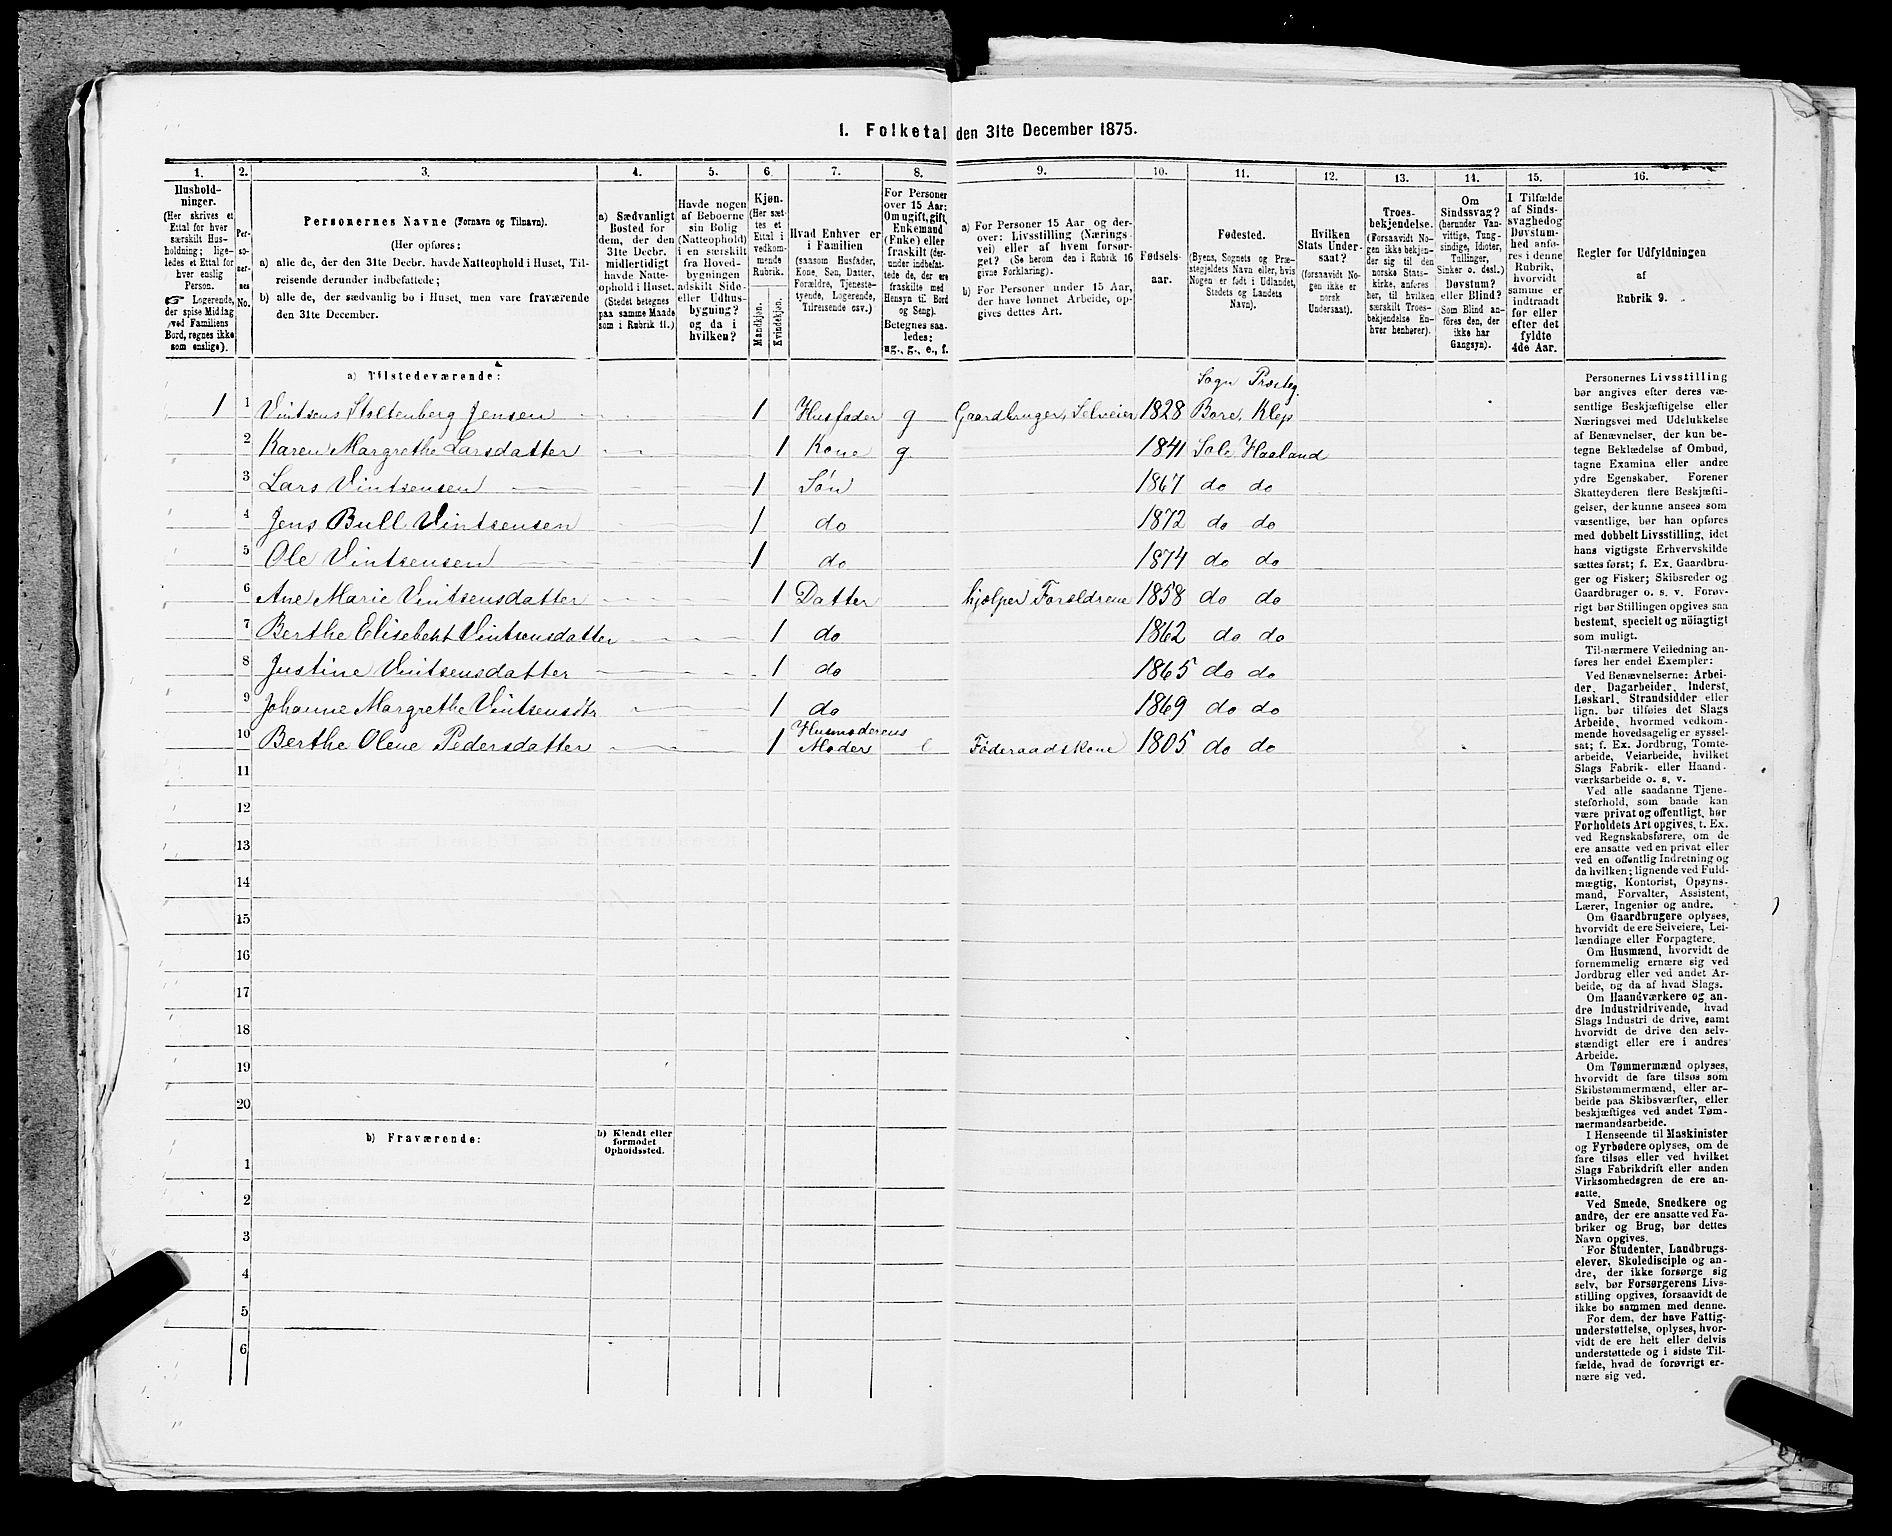 1. Folketal den 31te December 1875.
1. 2. 3. 4. 5. 6. 7. 8. 9. 10. 11. 12. 13. 14. 15. 16.
Hushold-
ninger.
(Her skrives et
Ettal for hver
særskilt Hus-
holdning; lige-
ledes et Ettal for
hver enslig
Person.
☞ Logerende,
der spise Middag
ved Familiens
Bord, regnes ikke
som enslige).
Per-
so-
ner-
nes
No.
Personernes Navne (Fornavn og Tilnavn).
(Her opføres:
a) alle de, der den 31te Decbr. havde Natteophold i Huset, Til-
reisende derunder indbefattede;
b) alle de, der sædvanlig bo i Huset, men vare fraværende
den 31te December.
a) Sædvanligt
Bosted for
dem, der den
31te Decbr.
midlertidigt
havde Natte-
ophold i Huset.
(Stedet betegnes
paa samme Maade
som i Rubrik 11.)
Havde nogen
af Beboerne
sin Bolig
(Natteophold)
i en særskilt
fra Hoved-
bygningen
adskilt Side-
eller Udhus-
bygning?
og da i
hvilken?
Kjøn.
(Her sæt-
tes et
Ettal i
vedkom-
mende
Rubrik.
Mandkjøn.
Kvindekjøn.
Hvad Enhver er
i Familien
(saasom Husfader,
Kone, Søn, Datter,
Forældre, Tjeneste-
tyende, Logerende,
Tilreisende osv.)
For Personer
over 15 Aar:
Om ugift, gift,
Enkemand
(Enke) eller
fraskilt (der-
under indbefat-
tede de, der ere
fraskilte med
Hensyn til Bord
og Seng).
Betegnes saa-
ledes:
ug., g., e., f.
a) For Personer 15 Aar og der-
over: Livsstilling (Nærings-
vei) eller af hvem forsør-
get? (Se herom den i Rubrik 16
givne Forklaring).
b) For Personer under 15 Aar,
der have lønnet Arbeide, op-
gives dettes Art.
Fødsels-
aar.
Fødested.
(Byens, Sognets og Præ-
stegjeldets Navn eller, hvis
Nogen er født i Udlandet,
Stedets og Landets
Navn).
Hvilken
Stats Under-
saat?
(forsaavidt No-
gen ikke er
norsk
Undersaat).
Troes-
bekjendelse.
(Forsaavidt No-
gen ikke bekjen-
der sig til den
norske Stats-
kirke, anføres
her, til hvilken
særskilt Troes-
bekjendelse En-
hver henhører).
Om
Sindssvag?
(herunder Van-
vittige, Tung-
sindige, Idioter,
Tullinger,
Sinker o. desl.)
Døvstum?
eller Blind?
(Som Blind an-
føres den, der
ikke har
Gangsyn).
I Tilfælde
af Sinds-
svaghed og
Døvstum-
hed anfø-
res i denne
Rubrik,
hvorvidt
samme er
indtraadt
før eller
efter det
fyldte
4de Aar.
Regler for Udfyldningen
af
Rubrik 9.
a) Tilstedeværende:
Sogn Præsteg.
1 1 Vintsens Stoltenberg Jensen 1 Husfader g Gaardbruger, Selveier 1828 Bore, Klep
2 Karen Margrethe Larsdatter 1 Kone g. 1841 Sole, Haaland
3 Lars Vintsensen 1 Søn 1867 do do
4 Jens Bull Vintsensen 1 do 1872 do do
5 Ole Vintsensen 1 do 1874 do do
6 Ane Marie Vintsensdatter 1 Datter hjælper Forældrene 1858 do do
7 Berthe Elisebeht Vintsensdatter 1 do 1862 do do
8 Justine Vintsensdatter 1 do 1865 do do
9 Johanne Margrethe Vintsensdtr 1 do 1869 do do
10 Berthe Olene Pedersdatter 1 Husmoderens Moder e Føderaadskone 1805 do do
11
12
13
14
15
16
17
18
19
20
b) Fraværende:
b) Kjendt eller
formodet
Opholdssted.
1
2
3
4
5
6
Personernes Livsstilling
bør angives efter deres væ-
sentlige Beskjæftigelse eller
Næringsvei med Udelukkelse
af Benævnelser, der kun be-
tegne Beklædelse af Ombud,
tagne Examina eller andre
ydre Egenskaber. Forener
Skatteyderen flere Beskjæfti-
gelser, der kunne ansees som
væsentlige, bør han opføres
med dobbelt Livsstilling, idet
hans vigtigste Erhvervskilde
sættes først; f. Ex. Gaardbru-
ger og Fisker; Skibsreder og
Gaardbruger o. s. v. Forøv-
rigt bør Stillingen opgives saa
bestemt, specielt og nöiagtigt
som muligt.
Til nærmere Veiledning an-
føres her endel Exempler:
Ved Benævnelserne: Arbei-
der, Dagarbeider, Inderst,
Løskarl, Strandsidder eller
lign. bør tilføies det Slags
Arbeide, hvormed vedkom-
mende hovedsagelig er syssel-
sat; f. Ex. Jordbrug, Tomte-
arbeide, Veiarbeide, hvilket
Slags Fabrik- eller Haand-
værksarbeide o. s. v.
Ved alle saadanne Tjene-
steforhold, som baade kan
være privat og offentligt, bør
Forholdets Art opgives, t. Ex.
ved Regnskabsførere, om de
ere ansatte ved en privat eller
ved en offentlig Indretning og
da hvilken; lignende ved Fuld-
mægtig, Kontorist, Opsyns-
mand, Forvalter, Assistent,
Lærer, Ingeniør og andre.
Om Gaardbrugere oplyses,
hvorvidt de ere Selveiere, Lei-
lændiage eller Forpagtere.
Om Husmænd, hvorvidt de
fornemmelig ernære sig ved
Jordbrug eller ved andet Ar-
beide, og da af hvad Slags.
Om Haandværkere og an-
dre Industridrivende, hvad
Slags Industri de drive, samt
hvorvidt de drive den selv-
stændigt eller ere i andres
Arbeide.
Om Tømmermænd oplyses,
hvorvidt de fare tilsøs som
Skibstømmermænd, eller ar-
beide paa Skibsværfter, eller
beskjæftiges ved andet Tøm-
mermandsarbeide.
I Henseende til Maskinister
og Fyrbødere oplyses, om de
fare tilsøs eller ved hvilket
Slags Fabrikdrift eller anden
Virksomhedsgren de ere an-
satte.
Ved Smede, Snedkere og
andre, der ere ansatte ved Fa-
briker og Brug, bør dettes
Navn opgives.
For Studenter, Landbrugs-
elever, Skoledisciple og an-
dre, der ikke forsørge sig
selv, bør Forsørgerens Livs-
stilling opgives, forsaavidt de
ikke bo sammen med denne.
For dem, der have Fattig-
understøttelse, oplyses, hvor-
vidt de ere helt eller delvis
understøttede og i sidste Til-
fælde, hvad de forøvrigt er-
nære sig ved.